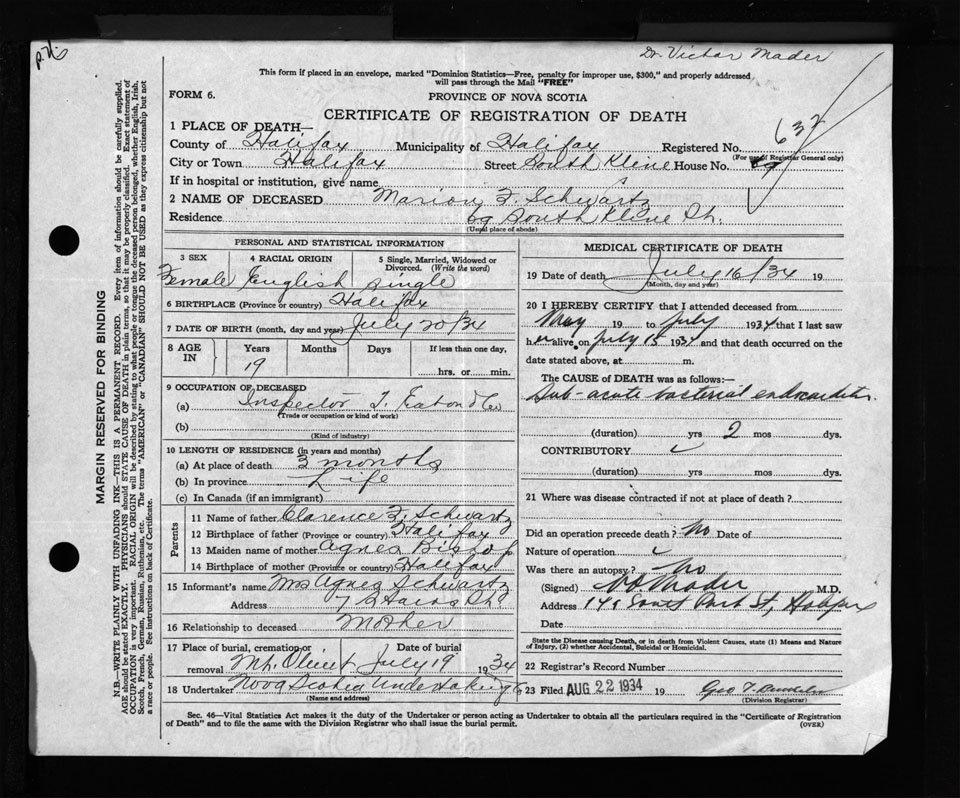 Dr. Victor Mader
This form if placed in an envelope, marked "Dominion Statistics—Free, penalty for improper use, $300," and properly addressed
will pass through the Mail "FREE"
FORM 6.
PROVINCE OF NOVA SCOTIA
CERTIFICATE OF REGISTRATION OF DEATH
637
1 PLACE OF DEATH—
County of Halifax Municipality of Halifax Registered No.
(For use of Registrar General only)
City or Town Halifax Street South Kline House No. 69
If in hospital or institution, give name
2 NAME OF DECEASED Marion F. Schwartz
Residence 69 South Kline St.
(Usual place of abode)
PERSONAL AND STATISTICAL INFORMATION
3 SEX 4 RACIAL ORIGIN 5 Single, Married, Widowed or Divorced. (Write the word)
Female English Single
6 BIRTHPLACE (Province or country) Halifax
7 DATE OF BIRTH (month, day and year) July 20/34
8 AGE IN Years Months Days If less than one day,
19 hrs. or min.
9 OCCUPATION OF DECEASED
(a) Inspector T. Eaton & Co
(Trade or occupation or kind of work)
(b)
(Kind of industry)
10 LENGTH OF RESIDENCE (in years and months)
(a) At place of death 3 months
(b) In province Life
(c) In Canada (if an immigrant)
Parents
11 Name of father Clarence F. Schwartz
12 Birthplace of father (Province or country) Halifax
13 Maiden name of mother Agnes Bishop
14 Birthplace of mother (Province or country) Halifax
15 Informant's name Mrs Agnes Schwartz
Address
16 Relationship to deceased Mother
17 Place of burial, cremation or removal Date of burial
Mt. Olivet July 19 1934
18 Undertaker Nova Scotia Undertaking Co
(Name and address)
MEDICAL CERTIFICATE OF DEATH
19 Date of death July 16/34 19
(Month, day and year)
20 I HEREBY CERTIFY that I attended deceased from
May 19 to July 1934 that I last saw
her alive on July 15 1934 and that death occurred on the
date stated above, at m.
The CAUSE OF DEATH was as follows:—
Sub-acute bacterial endocarditis.
(duration) yrs 2 mos dys.
CONTRIBUTORY
(duration) yrs mos dys.
21 Where was disease contracted if not at place of death?
Did an operation precede death? No Date of
Nature of operation
Was there an autopsy? No
(Signed) Mader M.D.
Address South Park St, Halifax
Date
State the Disease causing Death, or in death from Violent Causes, state (1) Means and Nature
of Injury, (2) whether Accidental, Suicidal or Homicidal.
22 Registrar's Record Number
23 Filed AUG 22 1934 19 Geo T.
(Division Registrar)
Sec. 46—Vital Statistics Act makes it the duty of the Undertaker or person acting as Undertaker to obtain all the particulars required in the "Certificate of Registration
of Death" and to file the same with the Division Registrar who shall issue the burial permit. (OVER)
MARGIN RESERVED FOR BINDING
N.B.—WRITE PLAINLY WITH UNFADING INK—THIS IS A PERMANENT RECORD. Every item of information should be carefully supplied.
AGE should be stated EXACTLY. PHYSICIANS should STATE CAUSE OF DEATH in plain terms, so that it may be properly classified. Exact statement of
OCCUPATION is very important. RACIAL ORIGIN will be described by stating to what people or tongue the deceased person belonged, whether English, Irish,
Scotch, French, German, Russian, Ruthenian, etc. The terms "AMERICAN" or "CANADIAN" SHOULD NOT BE USED as they express citizenship but not
a race or people. See instructions on back of Certificate.